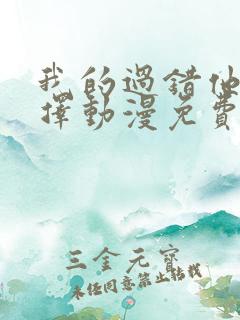 我的過錯他
擇動漫免費
三金元寶
未經同意禁止轉載